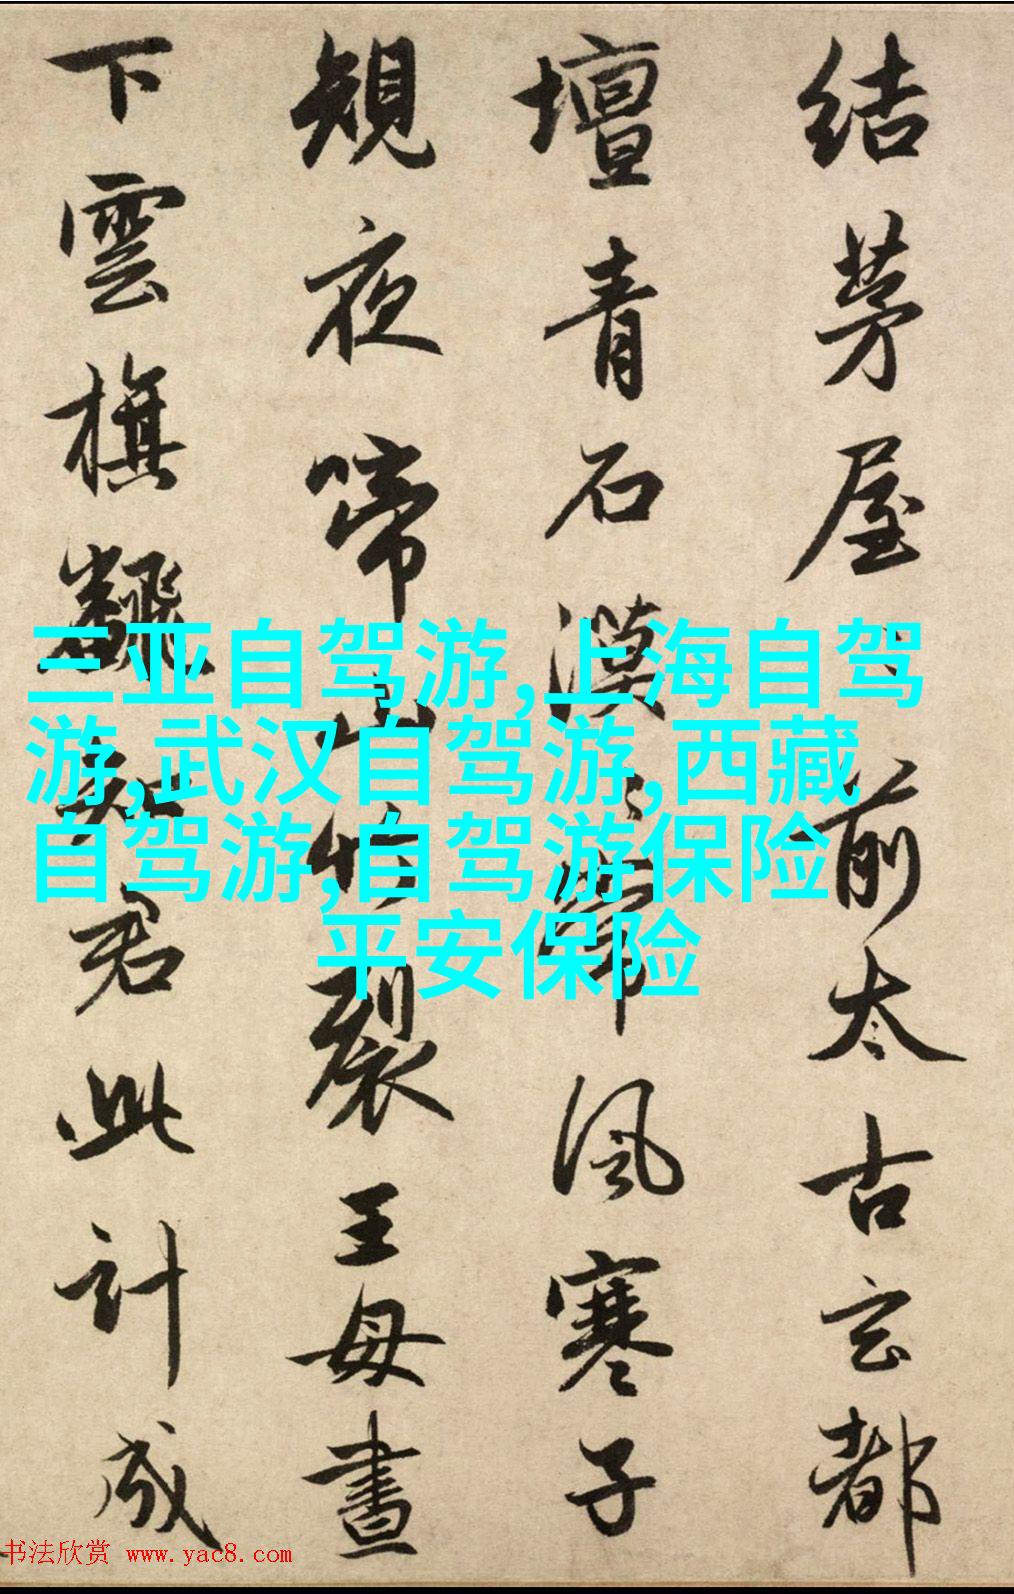 結茅屋〻前太古玄都
壇青石漠〻常風寒子
規夜啼山竹裂王母晝
下雲旗飜知君此計成
三亚自驾游,上海自驾
游,武汉自驾游,西藏
自驾游,自驾游保险
平安保险
书法欣赏 www.yac8.com